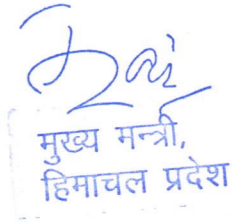 मुख्य मन्त्री,
हिमाचल प्रदेश